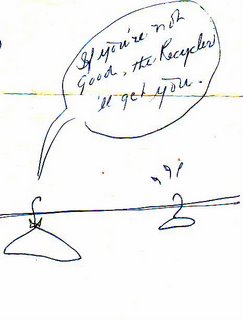 If you're not
good, the Recycler
'll get you.